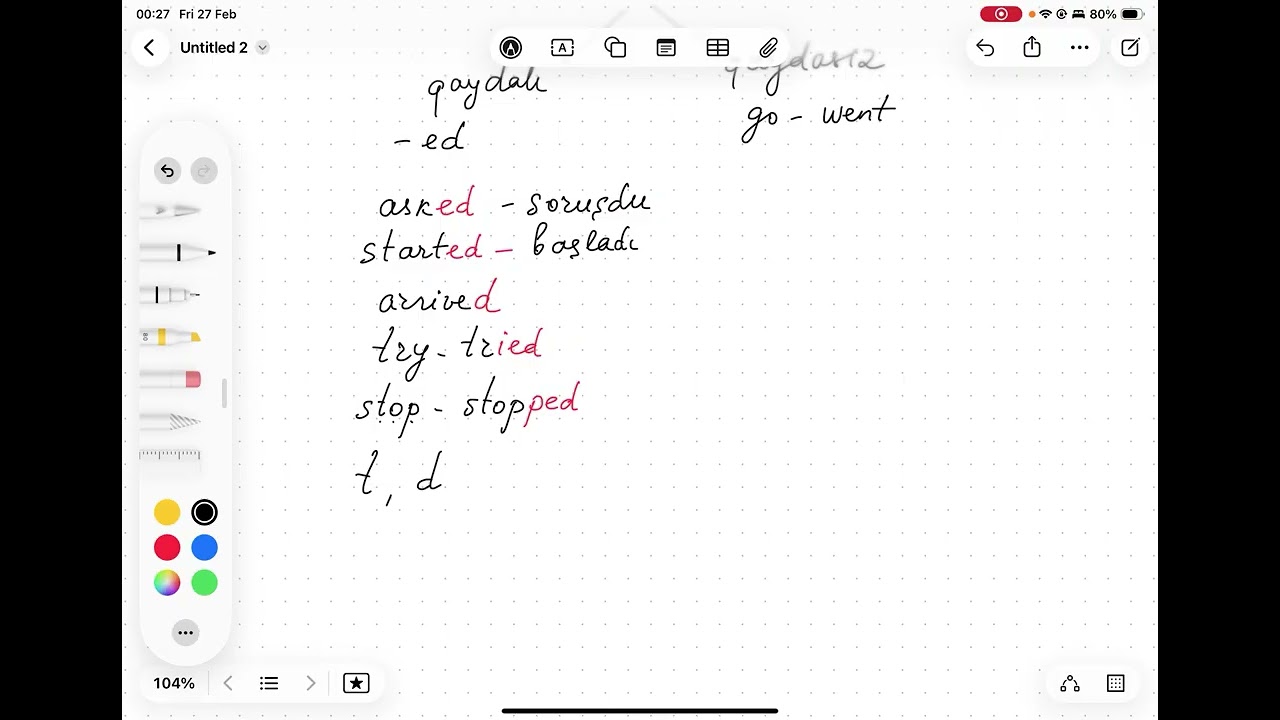 00:27 Fri 27 Feb
80%
Untitled 2
A
qaydalı
qaydasız
- ed
go - went
asked - soruşdu
started - başladı
arrived
try - tried
stop - stopped
t, d
80
104%